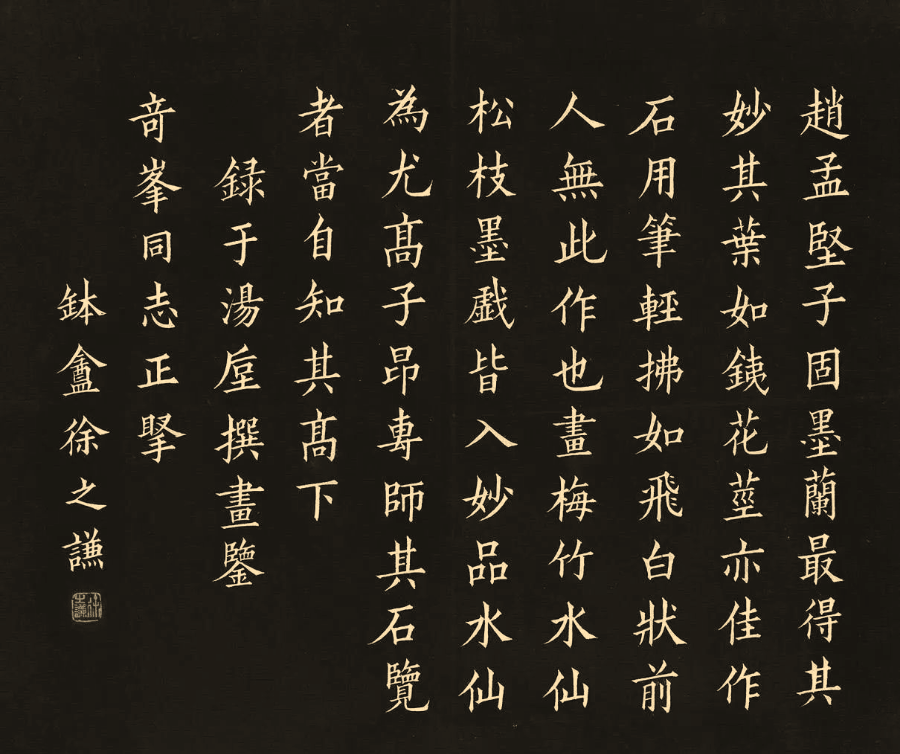 趙孟堅子固墨蘭最得其
妙其葉如鐵花莖亦佳作
石用筆輕拂如飛白狀前
人無此作也畫梅竹水仙
松枝墨戲皆入妙品水仙
為尤髙子昂專師其石覽
者當自知其髙下
録于湯垕撰畫鑒
竒峯同志正擥
缽盦徐之謙